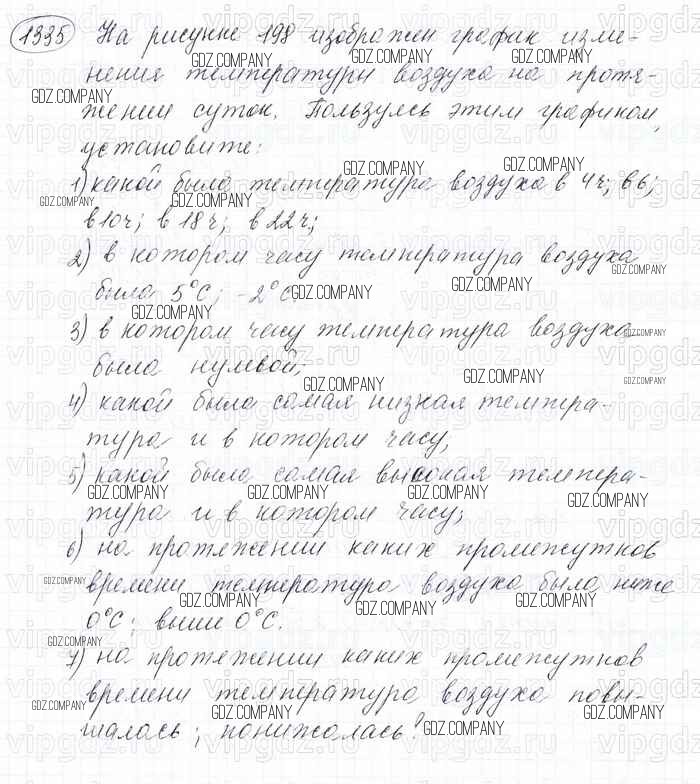 1335 На рисунке 198 изображен график изме-
нения температуры воздуха на протя-
жении суток. Пользуясь этим графиком,
установите:
1) какой была температура воздуха в 4ч; в 6;
в 10ч; в 18ч; в 22ч;
2) в котором часу температура воздуха
была 5°С; -2°С.
3) в котором часу температура воздуха
была нулевой;
4) какой была самая низкая темпера-
тура и в котором часу;
5) какой была самая высокая темпера-
тура и в котором часу;
6) на протяжении каких промежутков
времени температура воздуха была ниже
0°С; выше 0°С.
7) на протяжении каких промежутков
времени температура воздуха повы-
шалась; понижалась?
GDZ.COMPANY
vipgdz.ru